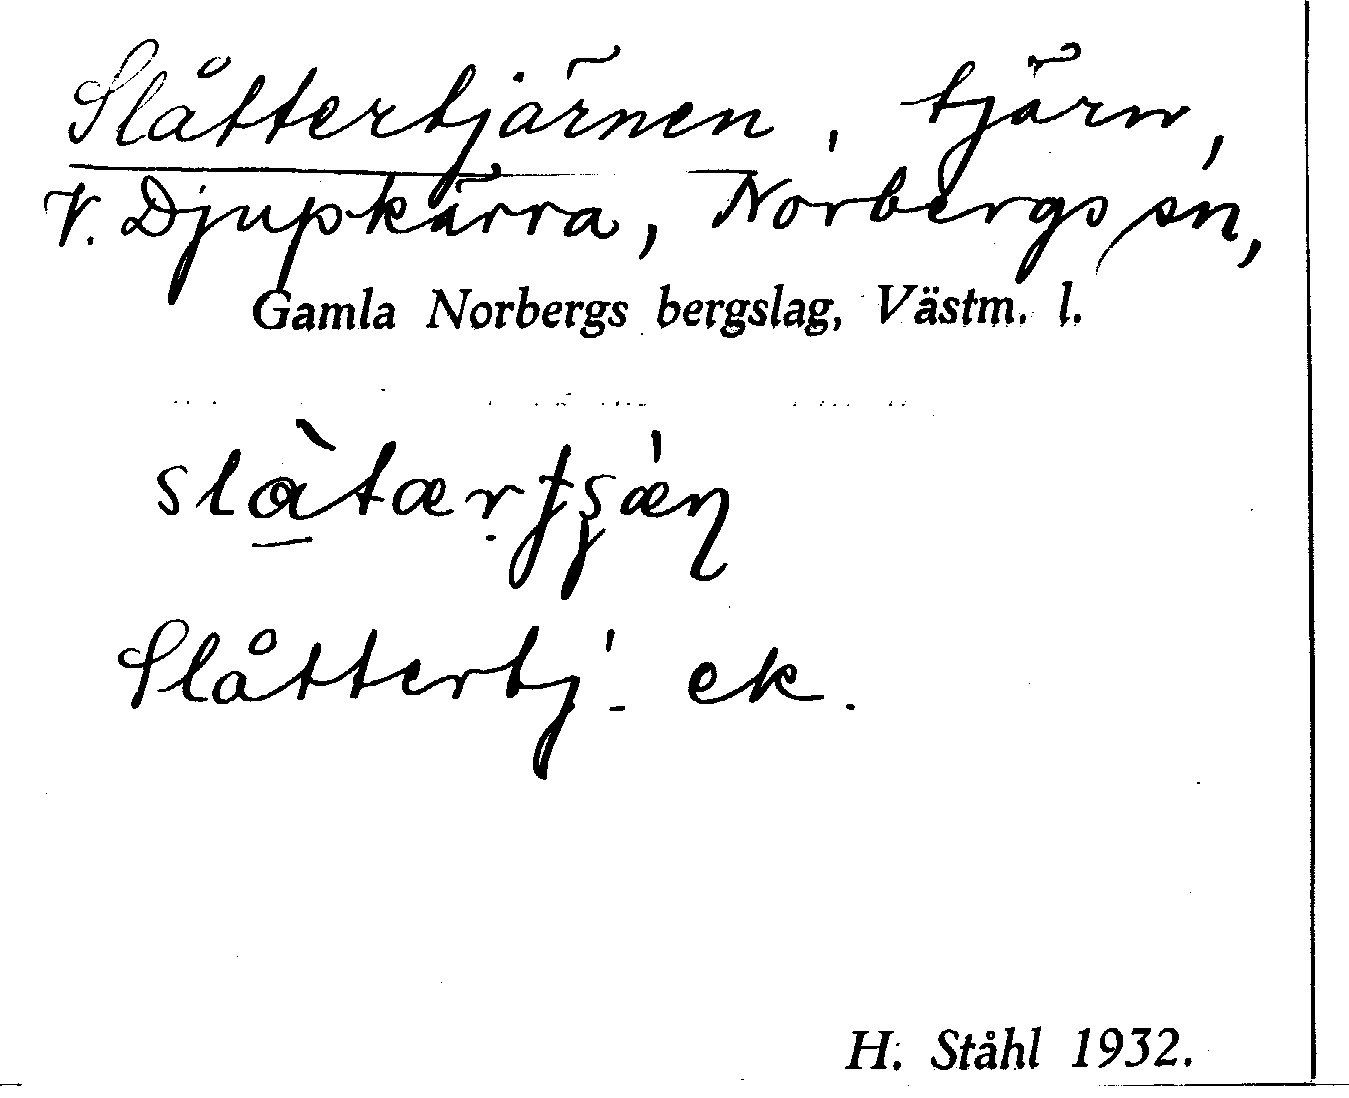 Slåttertjärnen, tjärn,
V. Djupkärra, Norbergs sn,
Gamla Norbergs bergslag, Västm. l.
Slåttertj. ek.
H. Ståhl 1932.